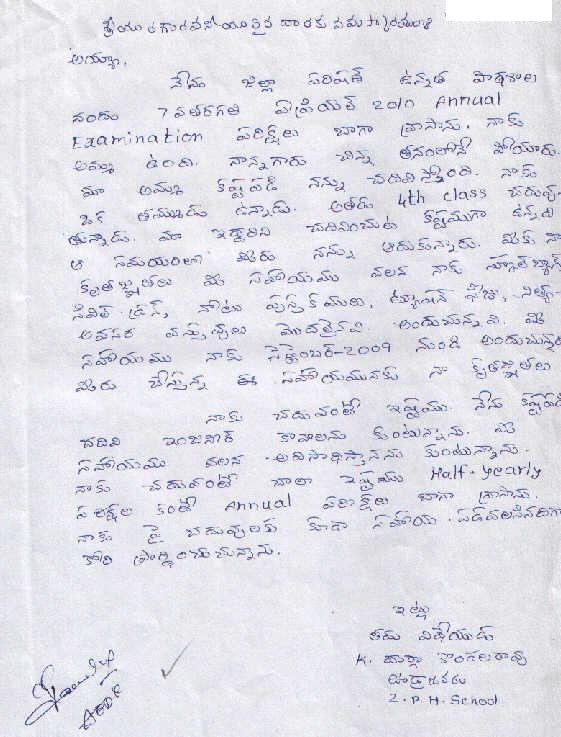 శ్రీయుత గౌరవనీయులైన వారికి నమస్కారములు
అయ్యా,
నేను జిల్లా పరిషత్ ఉన్నత పాఠశాల
నందు 7వ తరగతి ఏప్రియల్ 2010 Annual
Examination పరీక్షలు బాగా వ్రాసాను. నాకు
అమ్మ ఉంది. నాన్నగారు చిన్న తనంలోనే పోయారు.
మా అమ్మ కష్టపడి నన్ను చదివిస్తోంది. నాకు
ఒక తమ్ముడు ఉన్నాడు. అతడు 4th class చదువు-
తున్నాడు. మా ఇద్దరిని చదివించుట కష్టముగా ఉన్నది
ఆ సమయంలో మీరు నన్ను ఆదుకున్నారు. మీకు నా
కృతజ్ఞతలు మీ సహాయము వలన నాకు స్కూల్ బ్యాగ్
సివిల్ డ్రస్, నోటు పుస్తకములు, ట్యూషన్ ఫీజు, నిత్యా-
అవసర వస్తువులు మొదలైనవి. అందుచున్నవి. మీ
సహాయము నాకు సెప్టెంబర్-2009 నుండి అందుచున్నది
మీరు చేస్తున్న ఈ సహాయమునకు నా కృతజ్ఞతలు
నాకు చదువంటే ఇష్టము. నేను కష్టపడి
చదివి ఇంజనీర్ కావాలను కుంటున్నాను. మీ
సహాయము వలన అది సాధిస్తానను కుంటున్నాను.
నాకు చదువంటే చాలా ఇష్టము Half-yearly
పరీక్షల కంటే Annual పరీక్షలు బాగా వ్రాసాను.
నాకు పై చదువులకు కూడా సహాయ పడవలసినదిగా
కోరి ప్రార్థించుచున్నాను.
ఇట్లు
తమ విధేయుడు
K. దుర్గా
Z.P.H. School